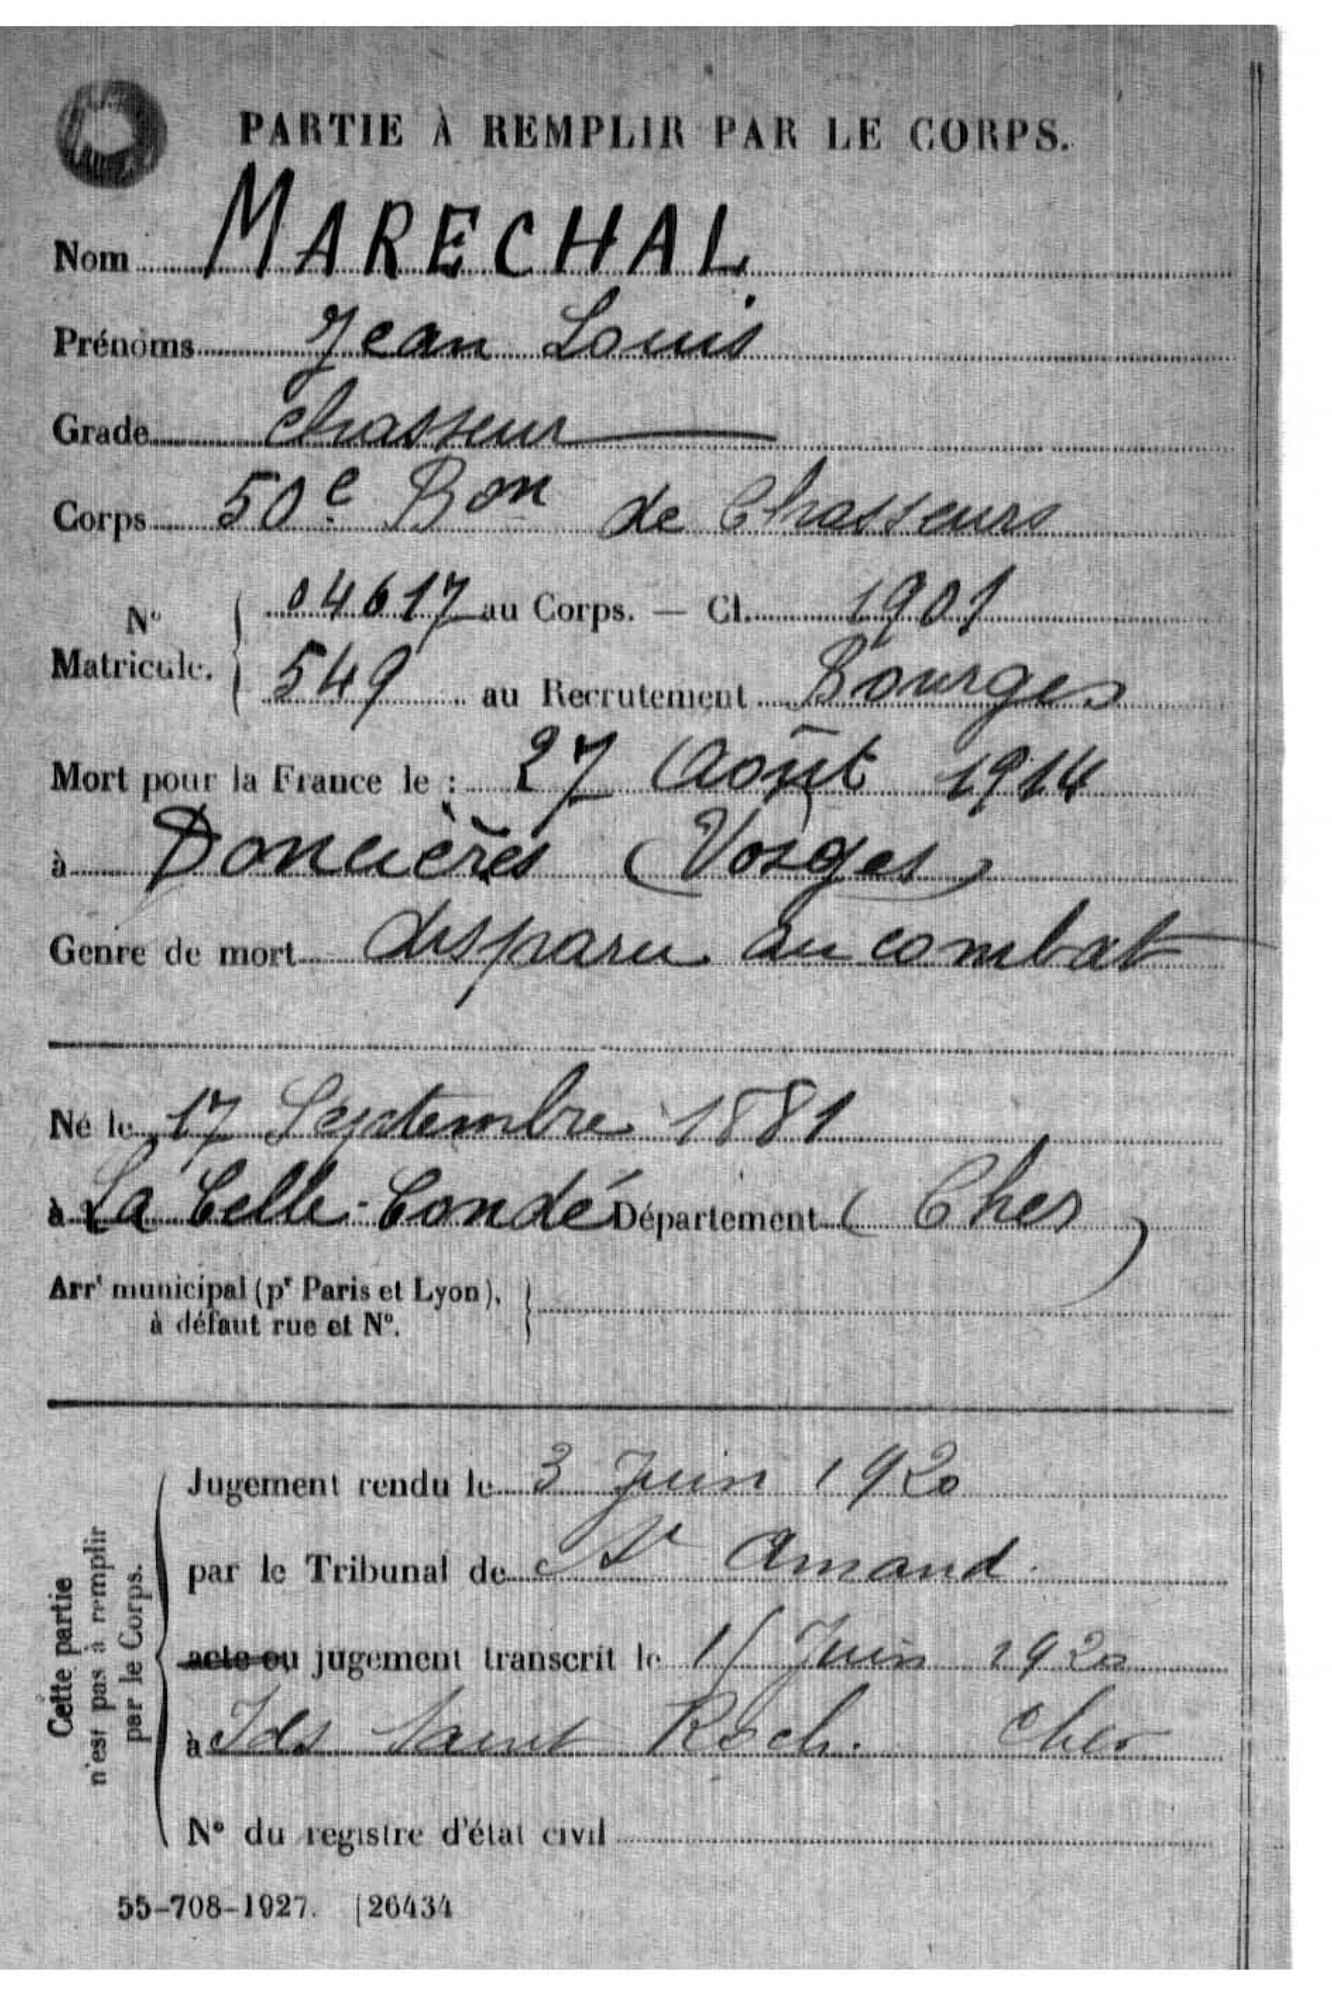 PARTIE À REMPLIR PAR LE CORPS.
Nom MARECHAL
Prénoms Jean Louis
Grade chasseur
Corps 50e Bon de Chasseurs
No Matricule. 04617 au Corps. — Cl. 1901
549 au Recrutement Bourges
Mort pour la France le : 27 Août 1914
à Doncières (Vosges)
Genre de mort disparu au combat
Né le 17 Septembre 1881
à La Celle-Condé Département (Cher)
Arrt municipal (pr Paris et Lyon),
à défaut rue et No.
Cette partie
n'est pas à remplir
par le Corps.
Jugement rendu le 3 Juin 1920
par le Tribunal de St Amand.
acte ou jugement transcrit le Juin 1920
à Ids Saint Roch. Cher
No du registre d'état civil
55-708-1927. [26434